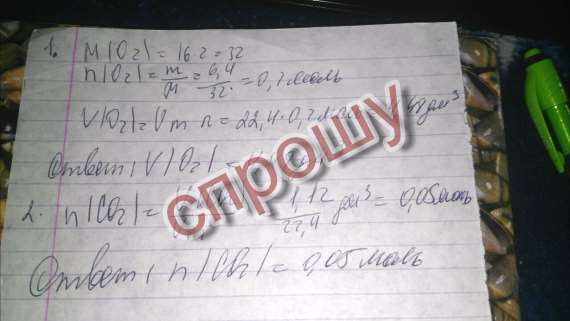 1. M(O2) = 16·2 = 32
n(O2) = m/M = 6,4/32 = 0,2 моль
V(O2) = Vm n = 22,4·0,2 моль = дм³
Ответ: V(O2) =
2. n(CO2) = 1,12/22,4 дм³ = 0,05 моль
Ответ: n(CO2) = 0,05 моль
спрошу